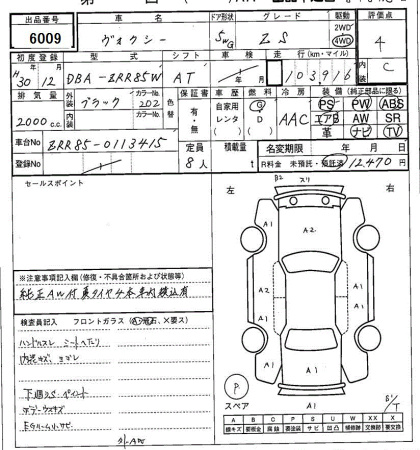 出品番号 車名 ドア形状 グレード 駆動 評価点
6009 ヴォクシー 5WG ZS 2WD 4WD 4
初度登録 型式 シフト 車検 走行(km・マイル) 内装
H30 12 DBA-ZRR85W AT 年 月 103,916 C
排気量 外装 カラーNo. 色替 保証書 車歴 燃料 冷房 装備(純正部品に限る)
2000c.c. ブラック 202 有・無 自家用 レンタ G D AAC PS PW ABS
内装 カラーNo. エアB AW SR
革 ナビ TV
車台No ZRR85-0113415 定員 積載量 名変期限 年 月 日
登録No 8人 t R料金 未預託・預託済 12,470円
セールスポイント
左 右
B2 スリ
A1 A2 A1
A2
A1 A1
A1 A1
A1
※注意事項記入欄(修復・不具合箇所および状態等)
純正AW付 夏タイヤ4本車内積込有
検査員記入 フロントガラス(A飛石、X要ス)
ハンドルスレ シートヘタリ
内装キズ、ヨゴレ
下廻リS、ペイント
P
スペア
A B C P S U W X XX X
線キズ 要板金 腐蝕 要塗装 サビ 凹凸 補修跡 交換跡 要交換